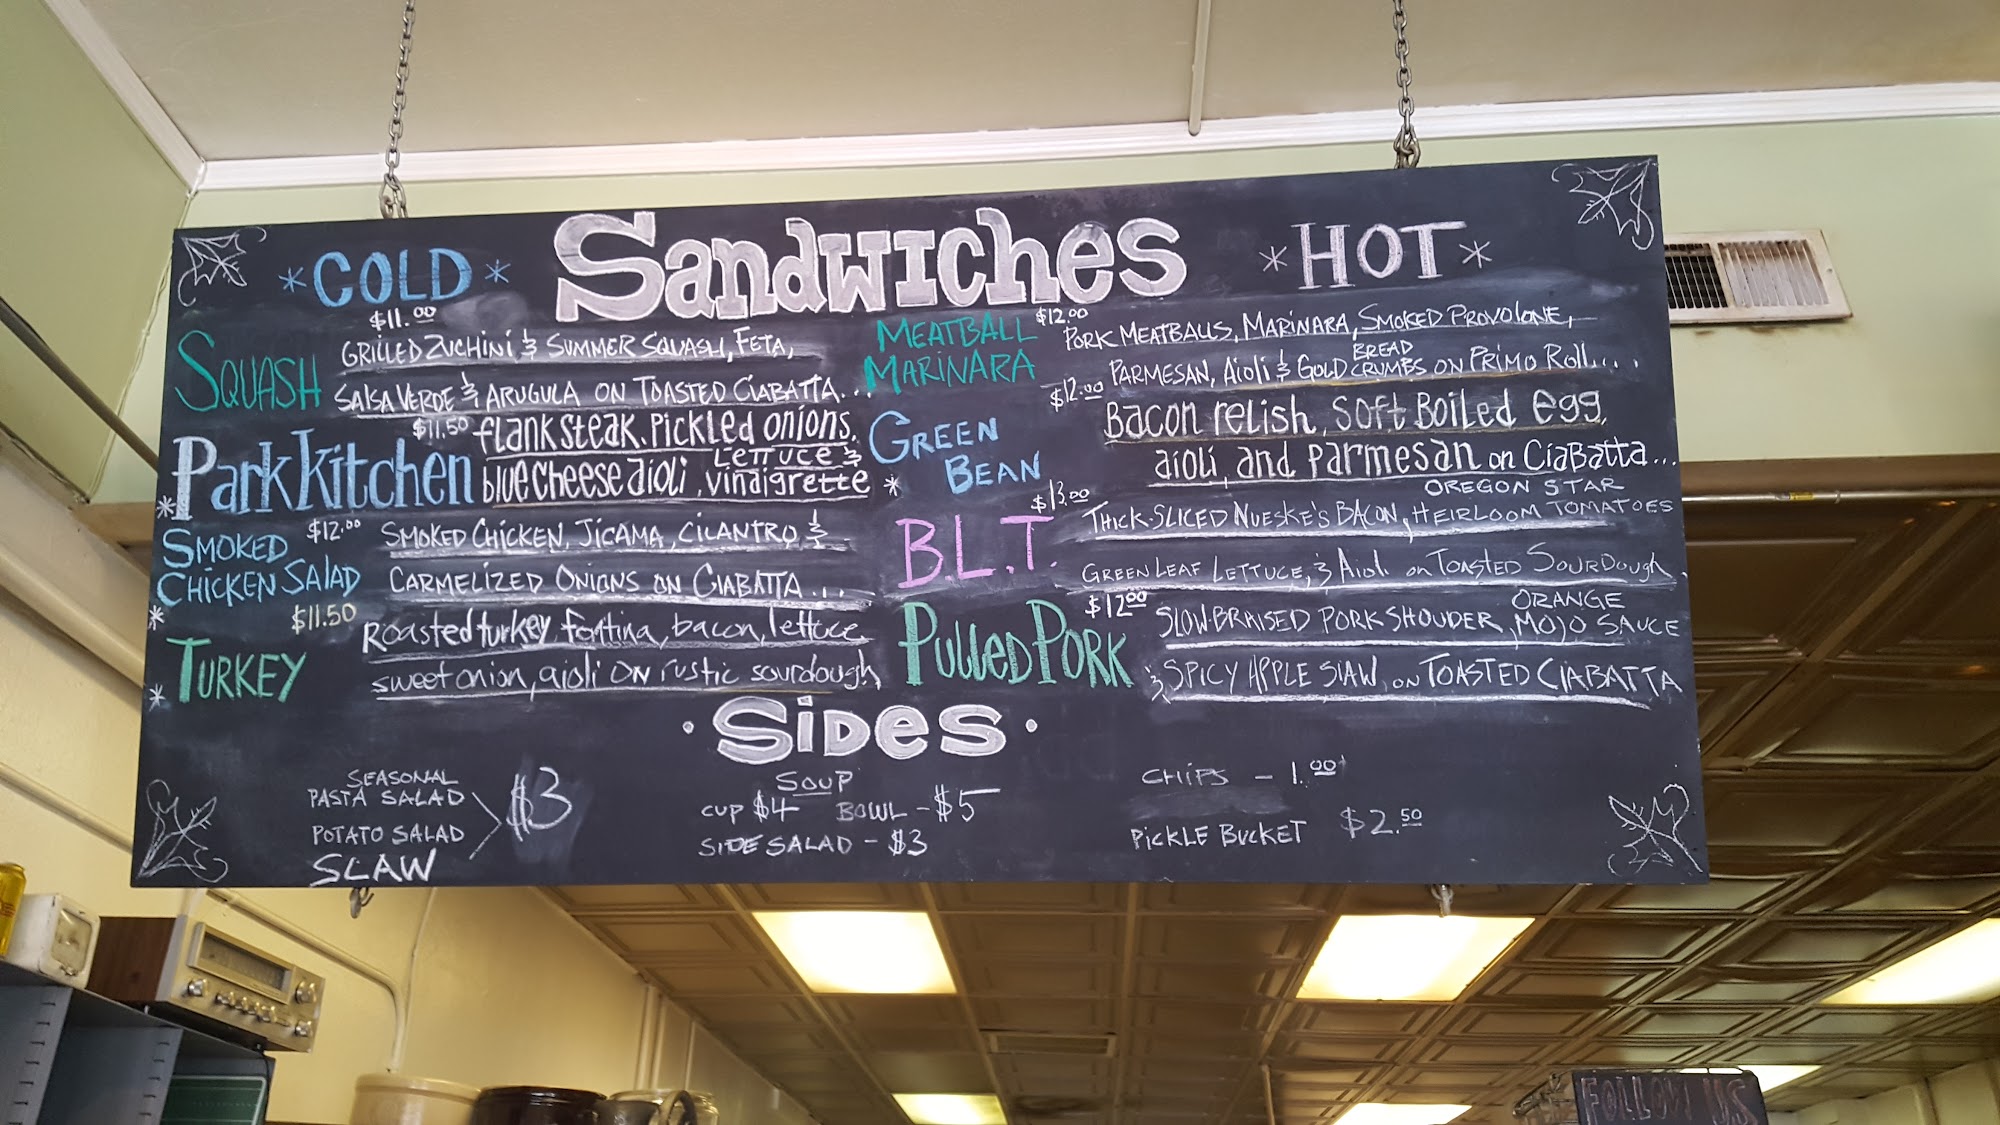 *COLD*
Sandwiches
*HOT*
SQUASH
$11.00
GRILLED ZUCHINI, & SUMMER SQUASH, FETA,
SALSA VERDE & ARUGULA ON TOASTED CIABATTA...
*Park Kitchen
$11.50
flank steak, pickled onions,
LETTUCE &
blue cheese aioli, vinaigrette *
SMOKED
CHICKEN SALAD
$12.00
SMOKED CHICKEN, JICAMA, CILANTRO, &
CARMELIZED ONIONS ON CIABATTA...
*
$11.50
* TURKEY
Roasted turkey, fontina, bacon, lettuce
sweet onion, aioli ON rustic sourdough
MEATBALL
MARINARA
$12.00
PORK MEATBALLS, MARINARA, SMOKED PROVOLONE,
BREAD
PARMESAN, AIOLI & GOLD CRUMBS ON PRIMO ROLL...
GREEN
BEAN
$12.00
Bacon relish, soft Boiled egg,
aioli, and Parmesan on CiaBatta...
B.L.T.
$13.00
OREGON STAR
THICK-SLICED NUESKE'S BACON, HEIRLOOM TOMATOES
GREEN LEAF LETTUCE, & AIOLI ON TOASTED SOURDOUGH
PULLED PORK
$12.00
ORANGE
SLOW-BRAISED PORK SHOUDER, MOJO SAUCE
& SPICY APPLE SLAW, ON TOASTED CIABATTA
·SIDES·
SEASONAL
PASTA SALAD
POTATO SALAD
SLAW
$3
SOUP
CUP $4 BOWL - $5
SIDE SALAD - $3
CHIPS - 1.00
PICKLE BUCKET $2.50
FOLLOW US